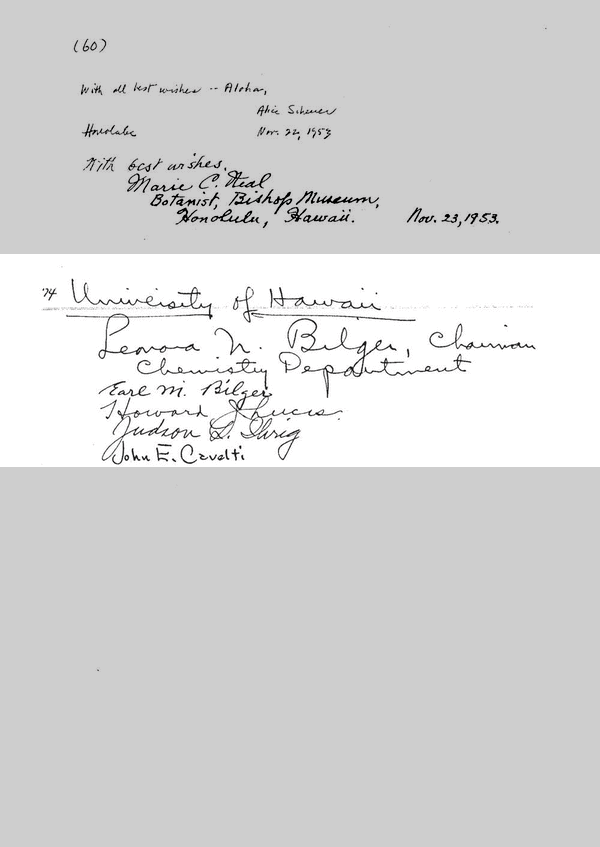 (60)
With all best wishes -- Aloha,
Alice Scheuer
Honolulu Nov. 22, 1953
With best wishes.
Marie C. Neal
Botanist, Bishop Museum,
Honolulu, Hawaii. Nov. 23, 1953.
'74 University of Hawaii
Leonora N. Bilger, Chairman
Chemistry Department
Earl M. Bilger
Howard
Judson L. Ihrig
John E. Cavelti